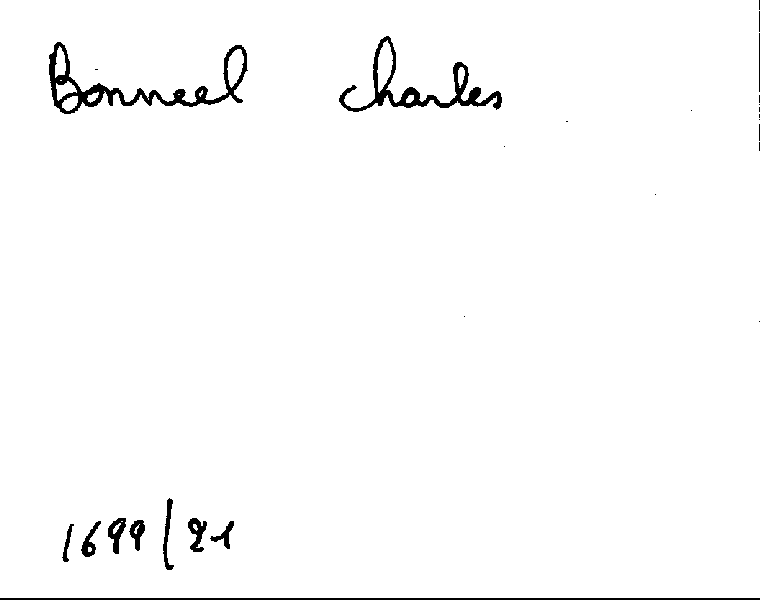 Bonneel Charles
1699/21